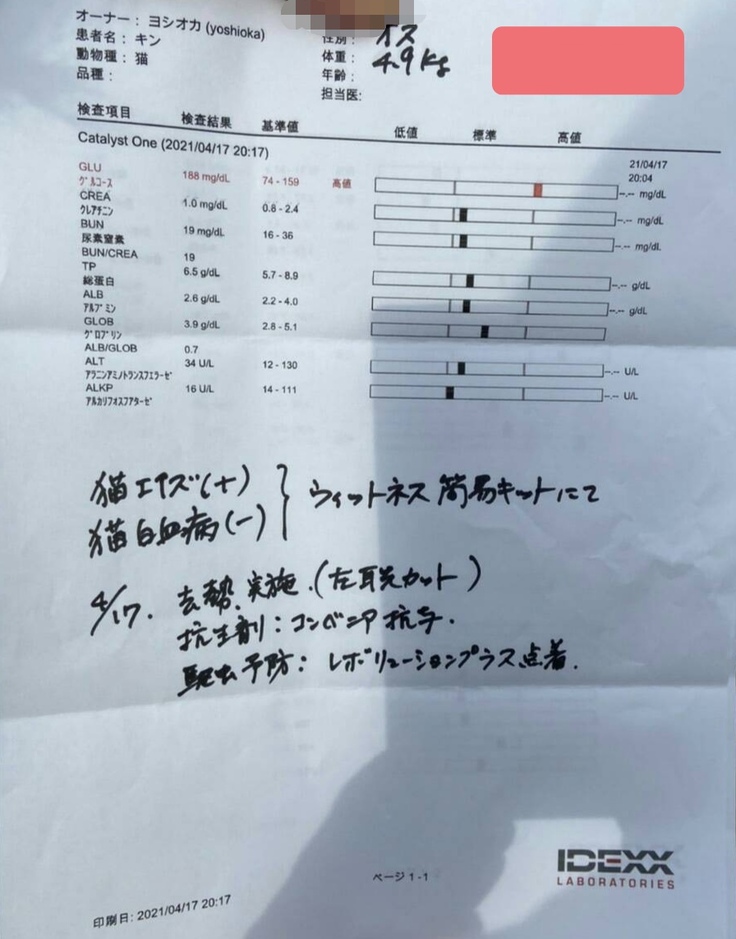 オーナー： ヨシオカ (yoshioka)
患者名： キン
動物種： 猫
品種：
性別： オス
体重： 4.9kg
年齢：
担当医:
検査項目 検査結果 基準値 低値 標準 高値
Catalyst One (2021/04/17 20:17)
21/04/17
20:04
GLU 188 mg/dL 74 - 159 高値 --.-- mg/dL
グルコース
CREA 1.0 mg/dL 0.8 - 2.4 --.-- mg/dL
クレアチニン
BUN 19 mg/dL 16 - 36 --.-- mg/dL
尿素窒素
BUN/CREA 19
TP 6.5 g/dL 5.7 - 8.9 --.-- g/dL
総蛋白
ALB 2.6 g/dL 2.2 - 4.0 --.-- g/dL
アルブミン
GLOB 3.9 g/dL 2.8 - 5.1
グロブリン
ALB/GLOB 0.7
ALT 34 U/L 12 - 130 --.-- U/L
アラニンアミノトランスフエラーゼ
ALKP 16 U/L 14 - 111 --.-- U/L
アルカリフオスフアターゼ
猫エイズ(+)
猫白血病(-)
ウィットネス簡易キットにて
4/17. 去勢実施.(左耳先カット)
抗生剤：コンベニア投与.
駆虫予防：レボリューションプラス点着.
IDEXX
LABORATORIES
ページ 1-1
印刷日: 2021/04/17 20:17